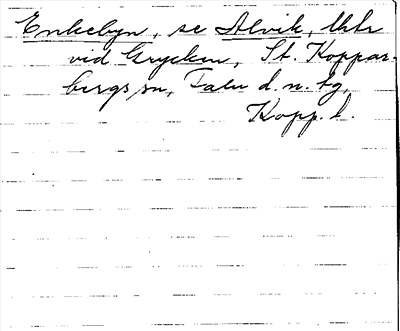 Enkebyn, se Alvik, lhtr
vid Grycken, St. Koppar-
bergs sn, Falu d. n. tg,
Kopp. l.